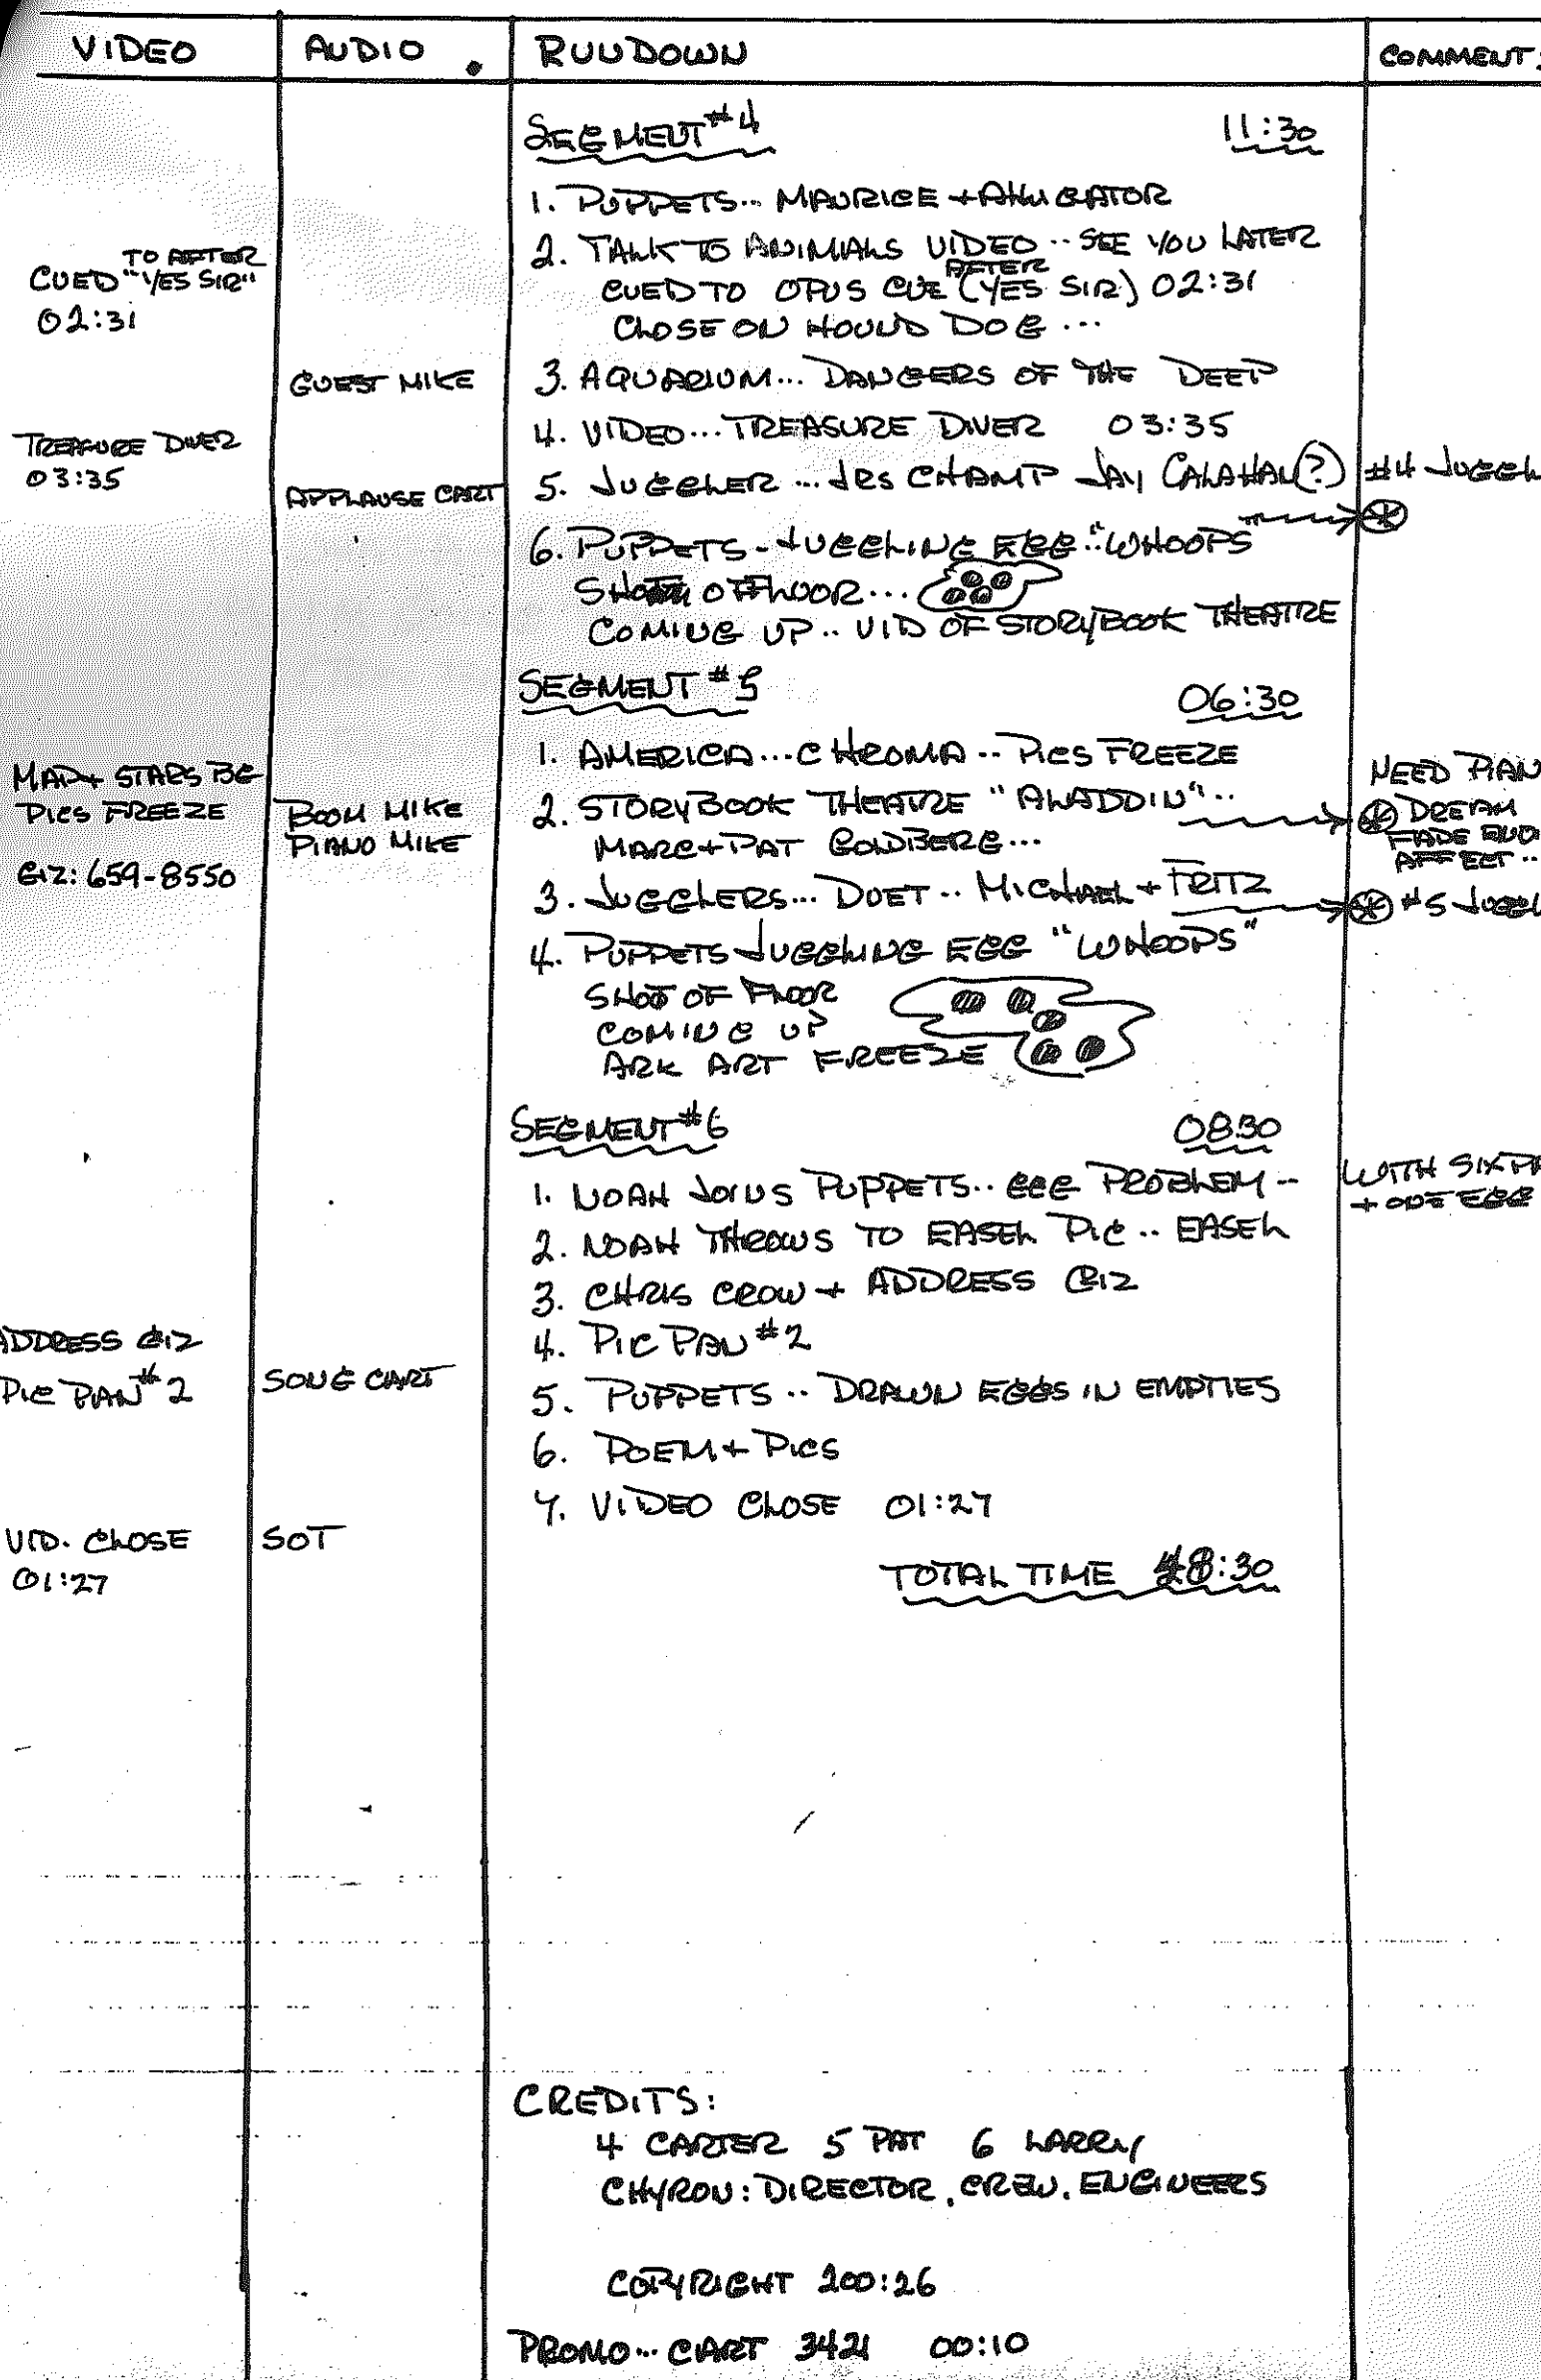 VIDEO AUDIO RUNDOWN COMMENT
SEGMENT #4 11:30
1. PUPPETS... MAURICE + ALLIGATOR
2. TALK TO ANIMALS VIDEO .. SEE YOU LATER
TO AFTER
CUED "YES SIR"
02:31
AFTER
CUED TO OPUS CUE (YES SIR) 02:31
CLOSE ON HOUND DOG ...
GUEST MIKE
3. AQUARIUM... DANGERS OF THE DEEP
TREASURE DIVER
03:35
4. VIDEO... TREASURE DIVER 03:35
APPLAUSE CART
5. JUGGLER ... JRS CHAMP JAY CALAHAN(?) #4 JUGGL
6. PUPPETS - JUGGLING EGG.. "WHOOPS"
SHOT OF FLOOR...
COMING UP .. VID OF STORYBOOK THEATRE
SEGMENT #5 06:30
MAP + STARS BG
PICS FREEZE
BOOM MIKE
PIANO MIKE
1. AMERICA... CHROMA .. PICS FREEZE
NEED PIAN
2. STORYBOOK THEATRE "ALADDIN"..
MARC + PAT GOLDBERG...
DREAM
FADE AUD
AFFECT ..
G12: 659-8550
3. JUGGLERS... DUET .. MICHAEL + FRITZ #5 JUGGL
4. PUPPETS JUGGLING EGG "WHOOPS"
SHOT OF FLOOR
COMING UP
ARK ART FREEZE
SEGMENT #6 0830
1. NOAH JOINS PUPPETS.. EGG PROBLEM --
WITH SIX PA
+ ONE EGG
2. NOAH THROWS TO EASEL PIC .. EASEL
3. CHRIS CROW + ADDRESS G12
ADDRESS G12
4. PIC PAN #2
PIC PAN #2 SONG CART
5. PUPPETS .. DRAWN EGGS IN EMPTIES
6. POEM + PICS
7. VIDEO CLOSE 01:27
VID. CLOSE SOT
01:27
TOTAL TIME 48:30
CREDITS:
4 CARTER 5 PAT 6 LARRY
CHYRON: DIRECTOR, CREW, ENGINEERS
COPYRIGHT 200:26
PROMO... CART 3421 00:10